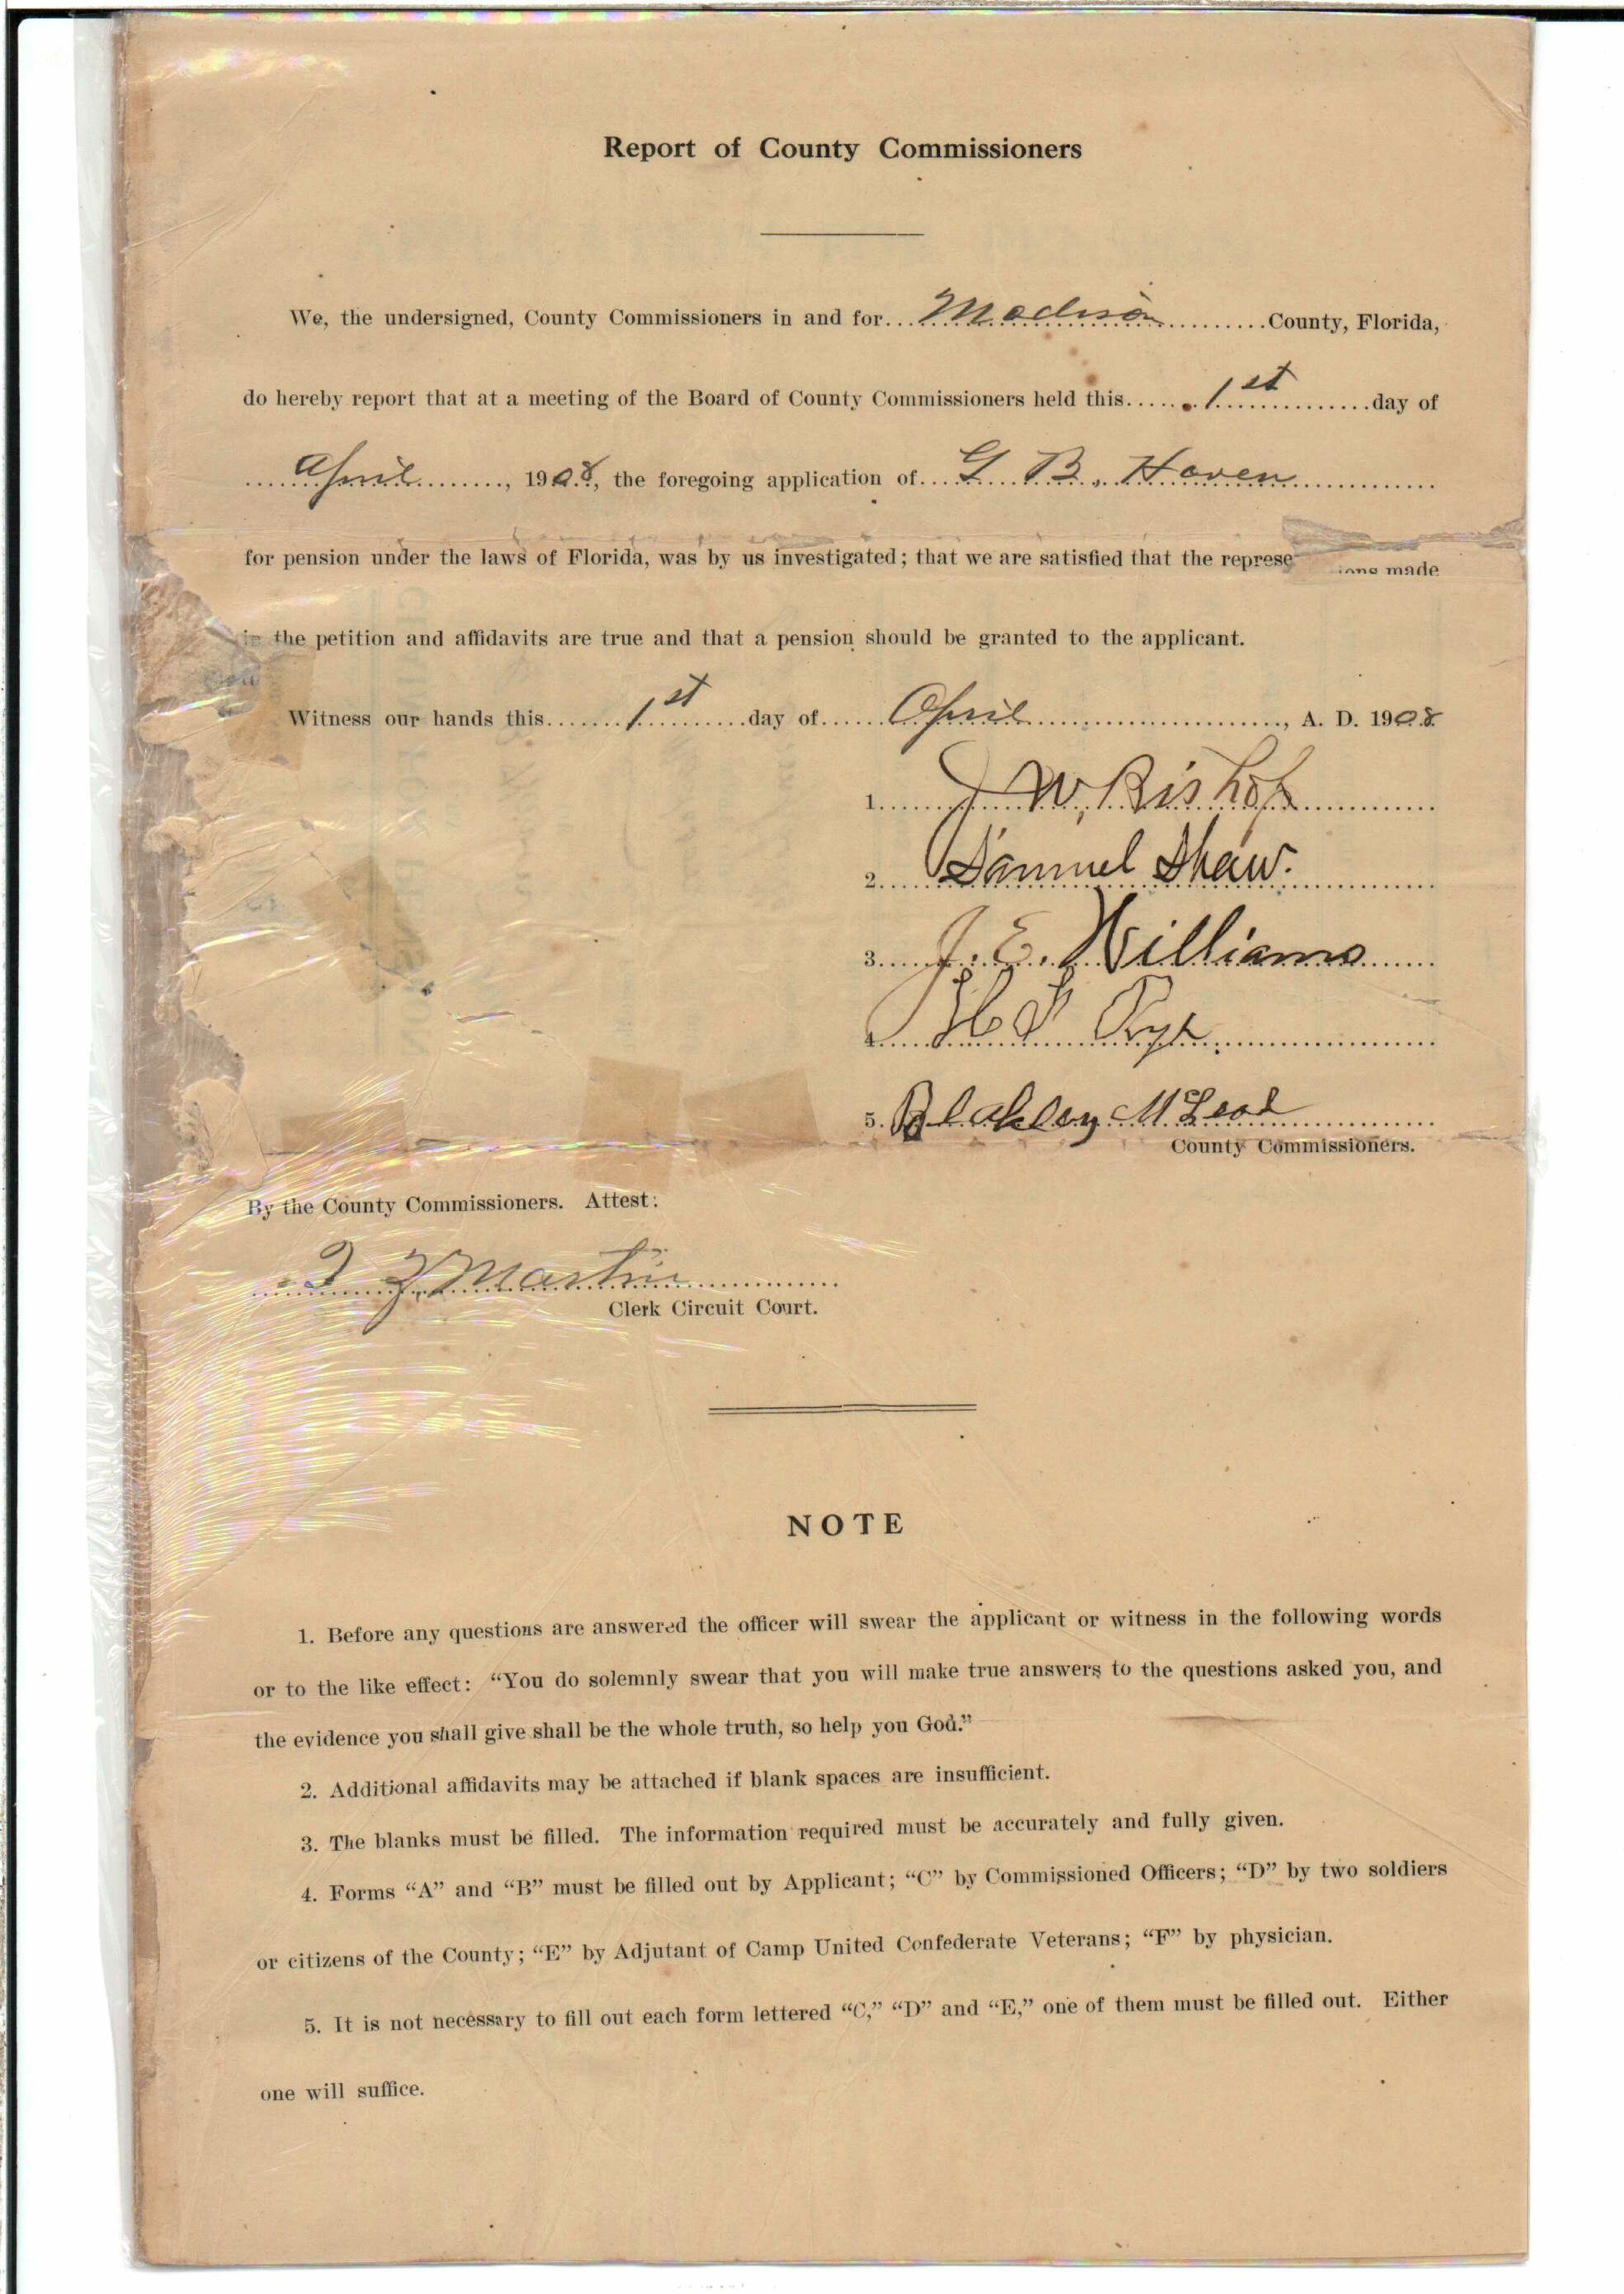 Report of County Commissioners
We, the undersigned, County Commissioners in and for Madison County, Florida,
do hereby report that at a meeting of the Board of County Commissioners held this 1st day of
April, 1908, the foregoing application of G. B. Haven
for pension under the laws of Florida, was by us investigated; that we are satisfied that the represe ions made
in the petition and affidavits are true and that a pension should be granted to the applicant.
Witness our hands this 1st day of April, A. D. 1908
1. J W. Bishop
2. Samuel Shaw.
3. J. E. Williams
4.
5. Blakley McLeod
County Commissioners.
By the County Commissioners. Attest:
Martin
Clerk Circuit Court.
NOTE
1. Before any questions are answered the officer will swear the applicant or witness in the following words
or to the like effect: “You do solemnly swear that you will make true answers to the questions asked you, and
the evidence you shall give shall be the whole truth, so help you God.”
2. Additional affidavits may be attached if blank spaces are insufficient.
3. The blanks must be filled. The information required must be accurately and fully given.
4. Forms “A” and “B” must be filled out by Applicant; “C” by Commissioned Officers; “D” by two soldiers
or citizens of the County; “E” by Adjutant of Camp United Confederate Veterans; “F” by physician.
5. It is not necessary to fill out each form lettered “C,” “D” and “E,” one of them must be filled out. Either
one will suffice.